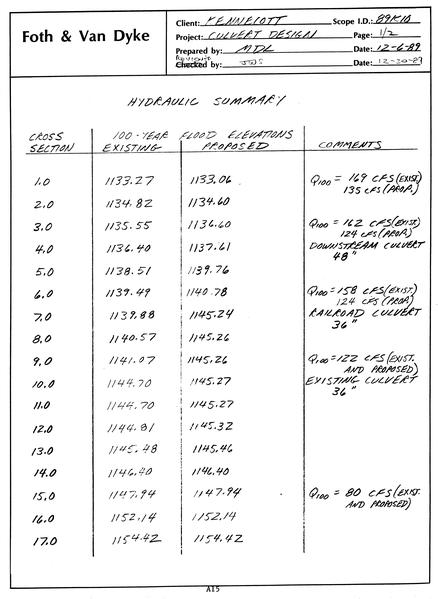 Foth & Van Dyke
Client: KENNECOTT Scope I.D.: 89K10
Project: CULVERT DESIGN Page: 1/2
Prepared by: MDL Date: 12-6-89
Checked by: JWS Date: 12-20-89
HYDRAULIC SUMMARY
CROSS 100-YEAR FLOOD ELEVATIONS
SECTION EXISTING PROPOSED COMMENTS
1.0 1133.27 1133.06 Q100 = 169 CFS (EXIST.)
135 CFS (PROP.)
2.0 1134.82 1134.60
3.0 1135.55 1136.60 Q100 = 162 CFS (EXIST.)
124 CFS (PROP.)
4.0 1136.40 1137.61 DOWNSTREAM CULVERT
48"
5.0 1138.51 1139.76
6.0 1139.49 1140.78 Q100 = 158 CFS (EXIST.)
124 CFS (PROP.)
7.0 1139.88 1145.24 RAILROAD CULVERT
36"
8.0 1140.57 1145.26
9.0 1141.07 1145.26 Q100 = 122 CFS (EXIST.
AND PROPOSED)
10.0 1144.70 1145.27 EXISTING CULVERT
36"
11.0 1144.70 1145.27
12.0 1144.81 1145.32
13.0 1145.48 1145.46
14.0 1146.40 1146.40
15.0 1147.94 1147.94 Q100 = 80 CFS (EXIST.
AND PROPOSED)
16.0 1152.14 1152.14
17.0 1154.42 1154.42
A15